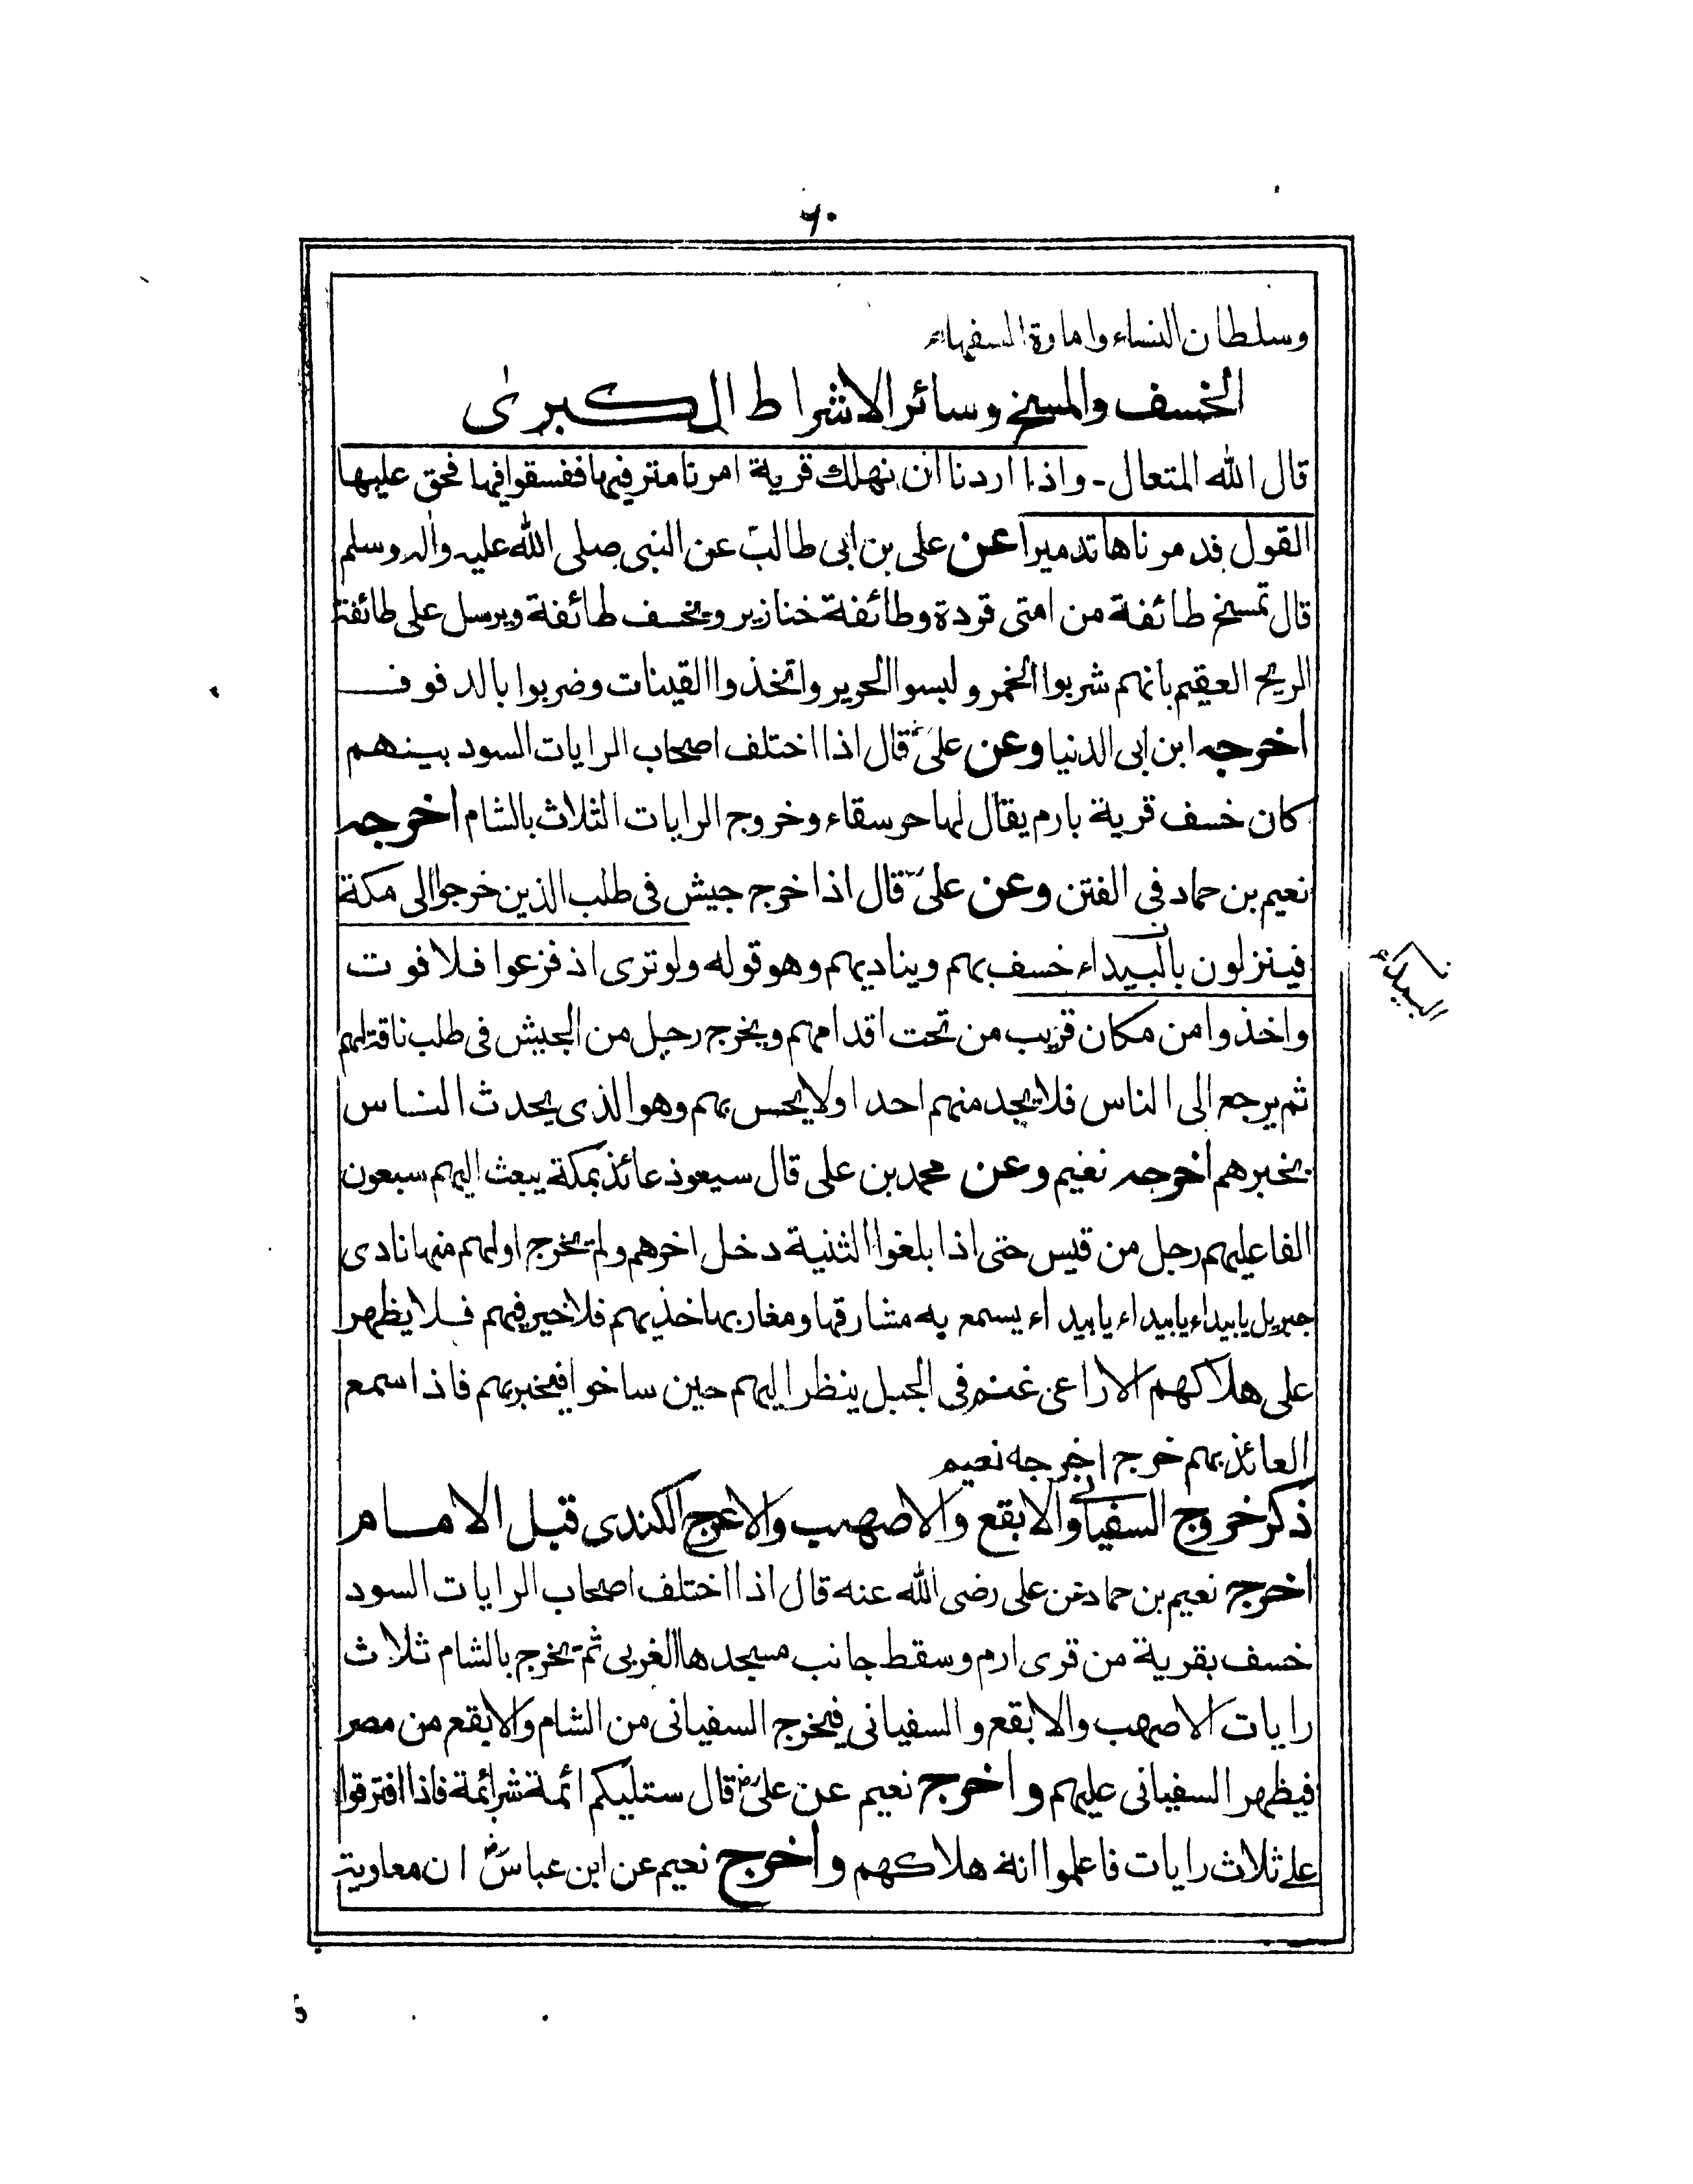 ٦٠
وسلطان النساء وامارة السفهاء
الخسف والمسخ وسائر الاشراط الكبرىٰ
قال الله المتعال۔ واذا اردنا ان نهلك قرية امرنا مترفيها ففسقوا فيها فحق عليها
القول فدمرناها تدميرا عن على بن ابى طالب عن النبى صلى الله عليه واٰله وسلم
قال تمسخ طائفة من امتى قردة وطائفة خنازير ويخسف طائفة ويرسل على طائفة
الريح العقيم بانهم شربوا الخمر ولبسوا الحرير واتخذوا القينات وضربوا بالدفوف
اخرجه ابن ابى الدنيا وعن علىؓ قال اذا اختلف اصحاب الرايات السود بينهم
كان خسف قرية بارم يقال لها حرسقاء وخروج الرايات الثلاث بالشام اخرجه
نعيم بن حماد فى الفتن وعن علىؓ قال اذا خرج جيش فى طلب الذين خرجوا الى مكة
فينزلون بالبيداء خسف بهم ويناديهم وهو قوله ولو ترى اذ فزعوا فلا فوت
واخذوا من مكان قريب من تحت اقدامهم ويخرج رجل من الجيش فى طلب ناقة لهم
ثم يرجع الى الناس فلا يجد منهم احدا ولا يحس بهم وهو الذى يحدث الناس
بخبرهم اخرجه نعيم وعن محمد بن على قال سيعوذ عائذ بمكة يبعث اليهم سبعون
الفا عليهم رجل من قيس حتى اذا بلغوا الثنية دخل اخرهم ولم يخرج اولهم منها نادى
جبريل يا بيداء يا بيداء يا بيداء يسمع به مشارقها ومغاربها خذيهم فلا خير فيهم فلا يظهر
على هلاكهم الا راعى غنم فى الجبل ينظر اليهم حين ساخوا فيخبر بهم فاذا سمع
العائذ بهم خرج اخرجه نعيم
ذكر خروج السفيانى والابقع والاصهب والاعرج الكندى قبل الامام
اخرج نعيم بن حماد عن على رضى الله عنه قال اذا اختلف اصحاب الرايات السود
خسف بقرية من قرى ارم وسقط جانب مسجدها الغربى ثم يخرج بالشام ثلاث
رايات الاصهب والابقع والسفيانى فيخرج السفيانى من الشام والابقع من مصر
فيظهر السفيانى عليهم واخرج نعيم عن علىؓ قال ستليكم ائمة شر ائمة فاذا افترقوا
على ثلاث رايات فاعلموا انه هلاكهم واخرج نعيم عن ابن عباسؓ ان معاوية